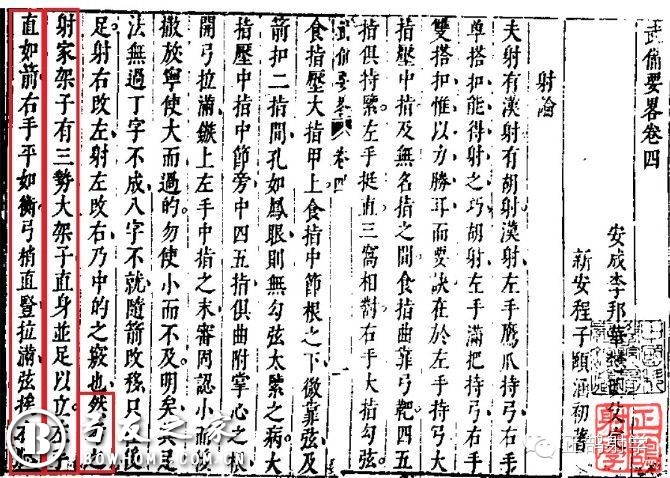 武備要畧卷四
安成李邦華
新安程子頤涵初著
射論
夫射有漢射有胡射漢射左手鷹爪持弓右手
單搭扣能得射之巧胡射左手滿把持弓右手
雙搭扣惟以力勝耳而要訣在於左手持弓大
指壓中指及無名指之間食指曲靠弓靶四五
指俱持緊左手挺直三窩相對右手大指勾弦
武備要畧 卷四
食指壓大指甲上食指中節根之下微靠弦及
箭扣二指間孔如鳳眼則無勾弦太緊之病大
指壓中指中節旁中四五指俱曲附掌心之根
開弓拉滿鏃上左手中指之末審固認小而後
撒放寧使大而過的勿使小而不及明矣其足
法無過丁字不成八字不就隨箭改移只使
足射右改左射左改右乃中的之竅也然之
射家架子有三勢大架子直身並足以立左手
直如箭右手平如衡弓梢直豎拉滿弦挨
弓友之家
正鵠射學
正鵠射學